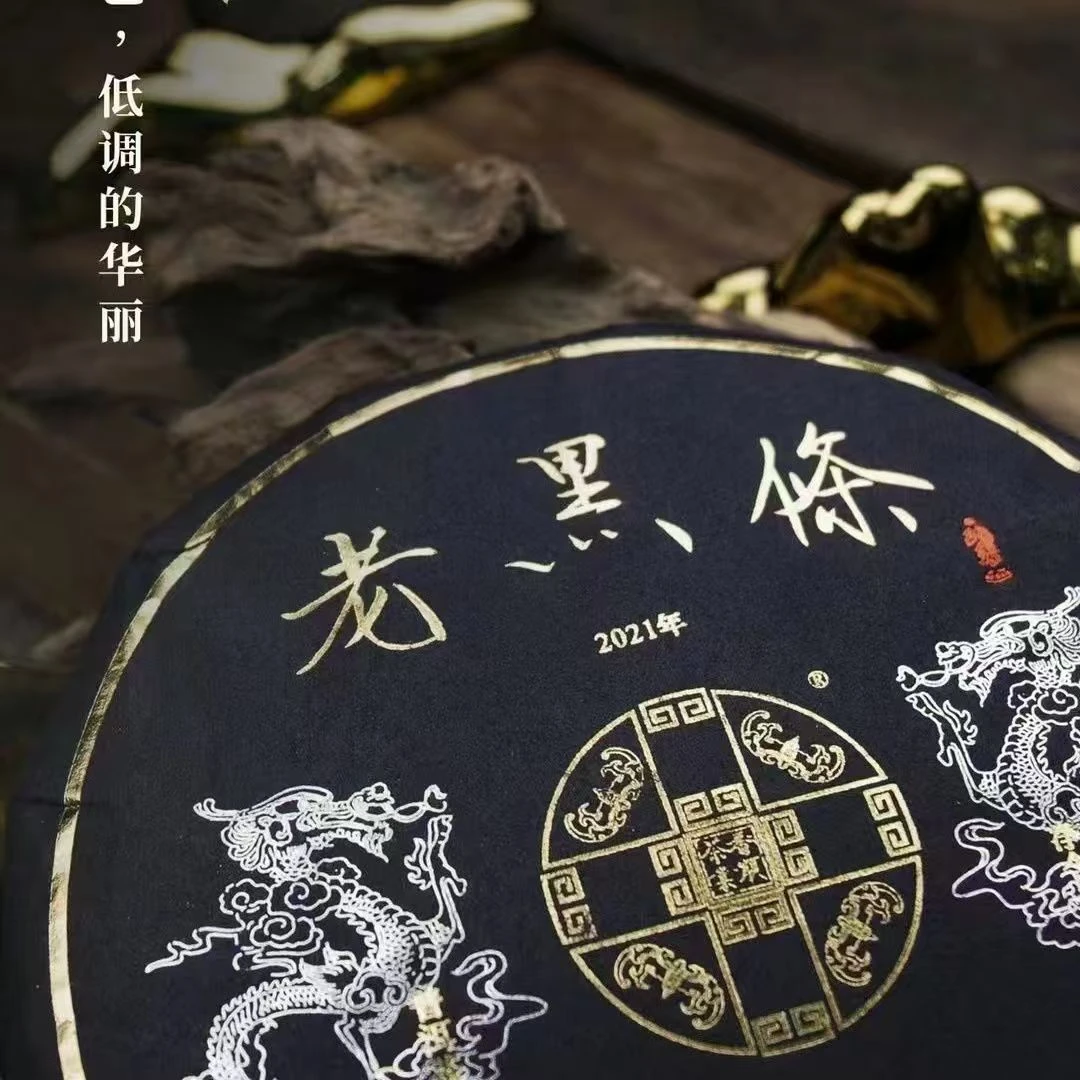 ，低调的华丽
老黑條
2021年
®